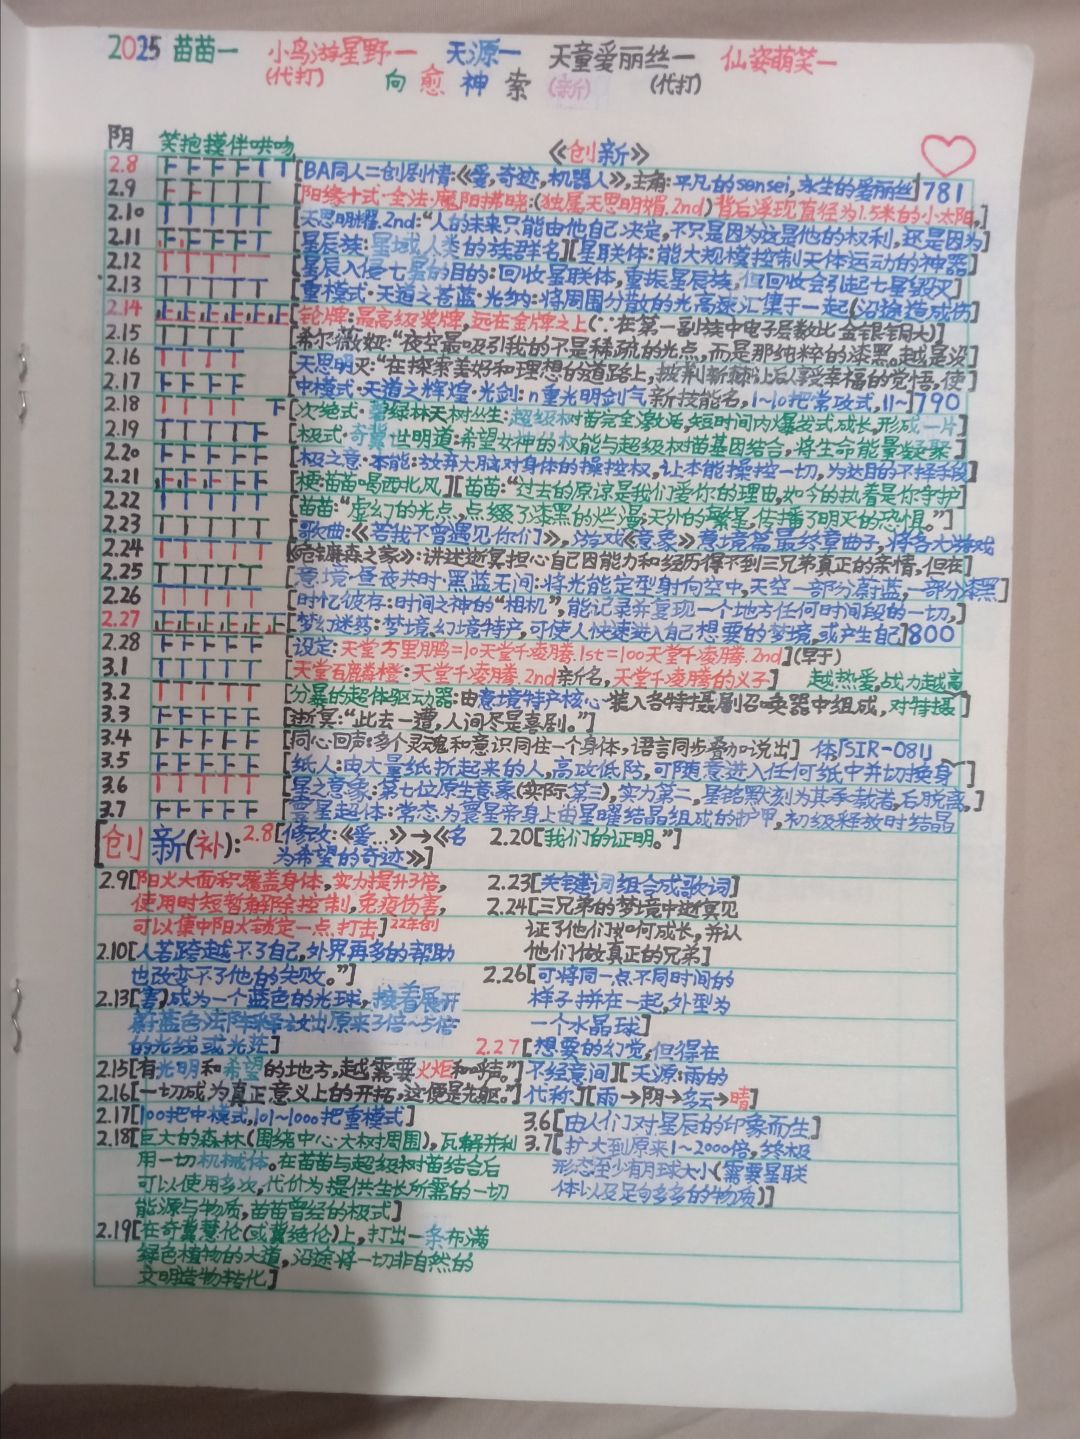 2025 苗苗一 小鸟游星野一 天源一 天童爱丽丝一 仙姿萌笑一
(代打) 向愈神索 (新) (代打)
阴 笑抱摸伴哄吻 《创新》
2.8 [BA同人二创剧情:《爱,奇迹,机器人》,主角:平凡的sensei,永生的爱丽丝]781
2.9 [阳缘十式·全法·魔阳拂晓:(独属天思明媚.2nd)背后浮现直径为1.5米的小太阳,]
2.10 [天思明耀.2nd:“人的未来只能由他自己决定,不只是因为这是他的权利,还是因为]
2.11 [星辰族:星域人类的族群名][星联体:能大规模控制天体运动的神器]
2.12 [星辰入侵七星的目的:回收星联体,重振星辰族,但回收会引起七星毁灭]
2.13 [重模式·天道之苍蓝·光纳:将周围分散的光高速汇集于一起(沿途造成伤]
2.14 正正正正正正 [轮牌:最高级奖牌,远在金牌之上(∵在第一副族中电子层数比金银铜大)]
2.15 [希尔薇娅:“夜空最吸引我的不是稀疏的光点,而是那纯粹的漆黑。越是没]
2.16 [天思明灭:“在探索美好和理想的道路上,披荆斩棘让后人享受幸福的觉悟,使]
2.17 [中模式·天道之辉煌·光剑:n重光明剑气新技能名,1~10把常攻式,11~]790
2.18 [次绝式·翠绿林天树丛生:超级树苗完全激活,短时间内爆发式成长,形成一片]
2.19 [极式·奇冀世明道:希望女神的权能与超级树苗基因结合,将生命能量凝聚]
2.20 [极之意·本能:放弃大脑对身体的操控权,让本能操控一切,为达目的不择手段]
2.21 [梗:苗苗喝西北风][苗苗:“过去的原谅是我们爱你的理由,如今的执着是你守护]
2.22 [苗苗:“虚幻的光点,点缀了漆黑的烂漫;天外的繁星,传播了明灭的恐惧。”]
2.23 [歌曲:《若我不曾遇见你们》,游戏《意象》意境篇最终章曲子,将各大游戏
2.24 麻森之家》:讲述逝冥担心自己因能力和经历得不到三兄弟真正的亲情,但在]
2.25 [意境·昼夜共时·黑蓝无间:将光能定型射向空中,天空一部分蔚蓝,一部分漆黑]
2.26 [时忆彼存:时间之神的“相机”,能记录并复现一个地方任何时间段的一切,]
2.27 正正正正正正 [梦幻迷药:梦境、幻境特产,可使人快速进入自己想要的梦境,或产生自己]800
2.28 [设定:天堂万里鹏=10天堂千凌腾.1st=100天堂千凌腾.2nd](早于)
3.1 [天堂百麟橙:天堂千凌腾.2nd新名,天堂千凌腾的义子] 越热爱,战力越高
3.2 [分暴的起体驱动器:由意境特产核心装入各特摄剧召唤器中组成,对特摄]
3.3 [逝冥:“此去一遭,人间尽是喜剧。”]
3.4 [同心回声:多个灵魂和意识同住一个身体,语言同步叠加说出] 体「SIR-081」
3.5 [纸人:由大量纸折起来的人,高攻低防,可随意进入任何纸中并切换身]
3.6 [星之意象:第七位原生意象(实际第三),实力第二,星铭默刻为其承载者,后脱离,]
3.7 [寰星起体:常态为寰星帝身上由星曜结晶组成的护甲,初级释放时结晶
[创新(补): 2.8[修改:《爱…》→《名 2.20[我们的证明。”]
为希望的奇迹》]
2.9[阳火大面积覆盖身体,实力提升3倍, 2.23[关键词组合成歌词]
使用时短暂解除控制,免疫伤害, 2.24[三兄弟的梦境中逝冥见
可以集中阳火锁定一点打击]22年创 证了他们如何成长,并认
2.10[人若跨越不了自己,外界再多的帮助 他们做真正的兄弟]
也改变不了他的失败。”] 2.26[可将同一点不同时间的
2.13[害)成为一个蓝色的光球,接着展开 样子拼在一起,外型为
蔚蓝色法阵释放出原来3倍~5倍 一个水晶球]
的光线或光茫] 2.27[想要的幻觉,但得在
2.15[有光明和希望的地方,越需要火炬和呼声。”] 不经意间][天源:雨的
2.16[一切成为真正意义上的开拓,这便是先驱。”] 代称][雨→阴→多云→晴]
2.17[100把中模式,101~1000把重模式] 3.6[由人们对星辰的印象而生]
2.18[巨大的森林(围绕中心大树周围),瓦解并利 3.7[扩大到原来1~2000倍,终极
用一切机械体。在苗苗与超级树苗结合后 形态至少有月球大小(需要星联
可以使用多次,代价为提供生长所需的一切 体以及足够多的物质)]
能源与物质,苗苗曾经的极式]
2.19[在奇冀慧伦(或冀绝伦)上,打出一条布满
绿色植物的大道,沿途将一切非自然的
文明造物转化]